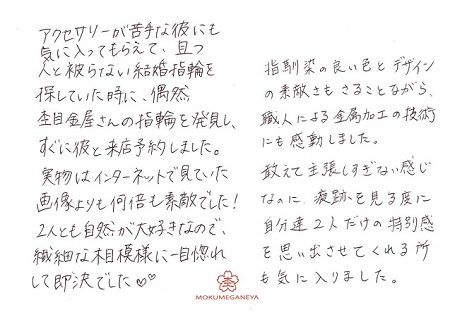 アクセサリーが苦手な彼にも
気に入ってもらえて、且つ
人と被らない結婚指輪を
探していた時に、偶然
杢目金屋さんの指輪を発見し、
すぐに彼と来店予約しました。
実物はインターネットで見ていた
画像よりも何倍も素敵でした!
2人とも自然が大好きなので、
繊細な木目模様に一目惚れ
して即決でした♡♡
指馴染の良い色とデザイン
の素敵さもさることながら、
職人による金属加工の技術
にも感動しました。
敢えて主張しすぎない感じ
なのに、痕跡を見る度に
自分達2人だけの特別感
を思い出させてくれる所
も気に入りました。
MOKUMEGANEYA